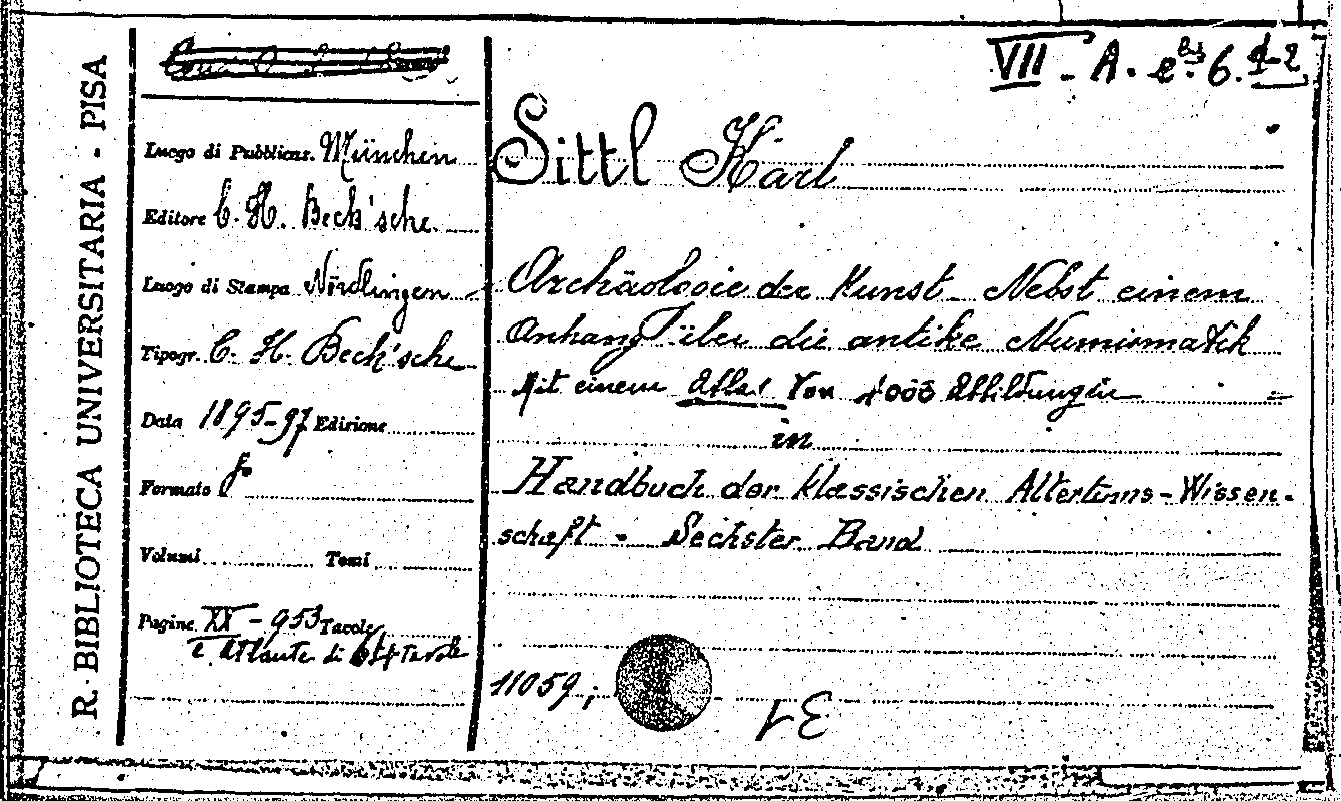 R. BIBLIOTECA UNIVERSITARIA - PISA
VII - A. e bis. 6. 1-2
Luogo di Pubblicaz. München
Editore C. H. Beck'sche
Luogo di Stampa Nördlingen
Tipogr. C. H. Beck'sche
Data 1895-97 Edizione
Formato 8°
Volumi Tomi
Pagine XX - 953 Tavole
e Atlante di 64 tavole
Sittl Karl
Archäologie der Kunst - Nebst einem
Anhang über die antike Numismatik
Mit einem Atlas von 1000 Abbildungen =
in
Handbuch der klassischen Altertums-Wissen-
schaft - Sechster Band
11059;